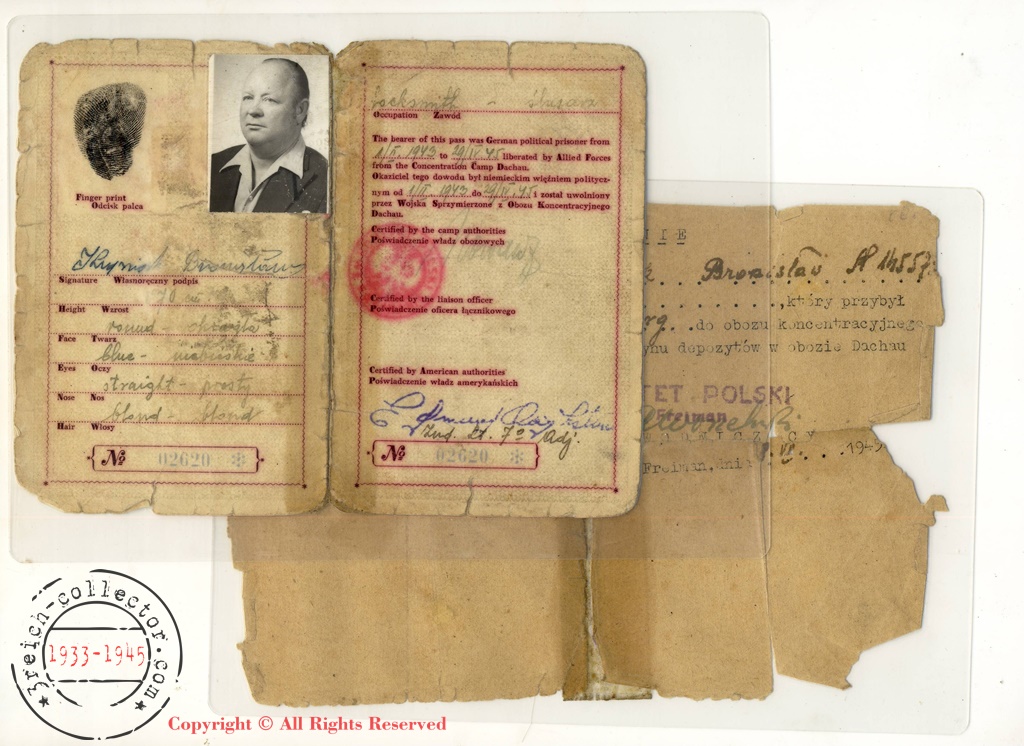 Finger print
Odcisk palca
Signature Własnoręczny podpis
Height Wzrost
round -
Face Twarz
blue - niebieskie
Eyes Oczy
straight - prosty
Nose Nos
blond - blond
Hair Włosy
№ 02620 *
locksmith - ślusarz
Occupation Zawód
The bearer of this pass was German political prisoner from
1/II. 1943 to 29/IV.45 liberated by Allied Forces
from the Concentration Camp Dachau.
Okaziciel tego dowodu był niemieckim więźniem politycz-
nym od 1/II. 1943 do 29/IV.45 i został uwolniony
przez Wojska Sprzymierzone z Obozu Koncentracyjnego
Dachau.
Certified by the camp authorities
Poświadczenie władz obozowych
Certified by the liaison officer
Poświadczenie oficera łącznikowego
Certified by American authorities
Poświadczenie władz amerykańskich
2nd. Lt. Adj.
№ 02620 *
N I E
Bronislav
. . . . . . . . . ,który przybył
rg. . do obozu koncentracyjnego
ynu depozytów w obozie Dachau
TET POLSKI
Freiman
W A D N I C Z Ą C Y
Freiman, dnia . . . 1945
3reich-collector.com
1933-1945
Copyright © All Rights Reserved